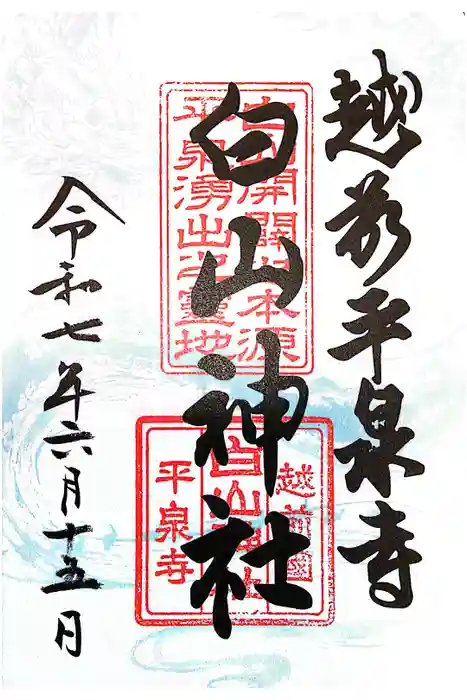 越前平泉寺
白山神社
白山開闢之本源
平泉湧出之靈地
越前國
白山神社
平泉寺
令和七年六月十五日